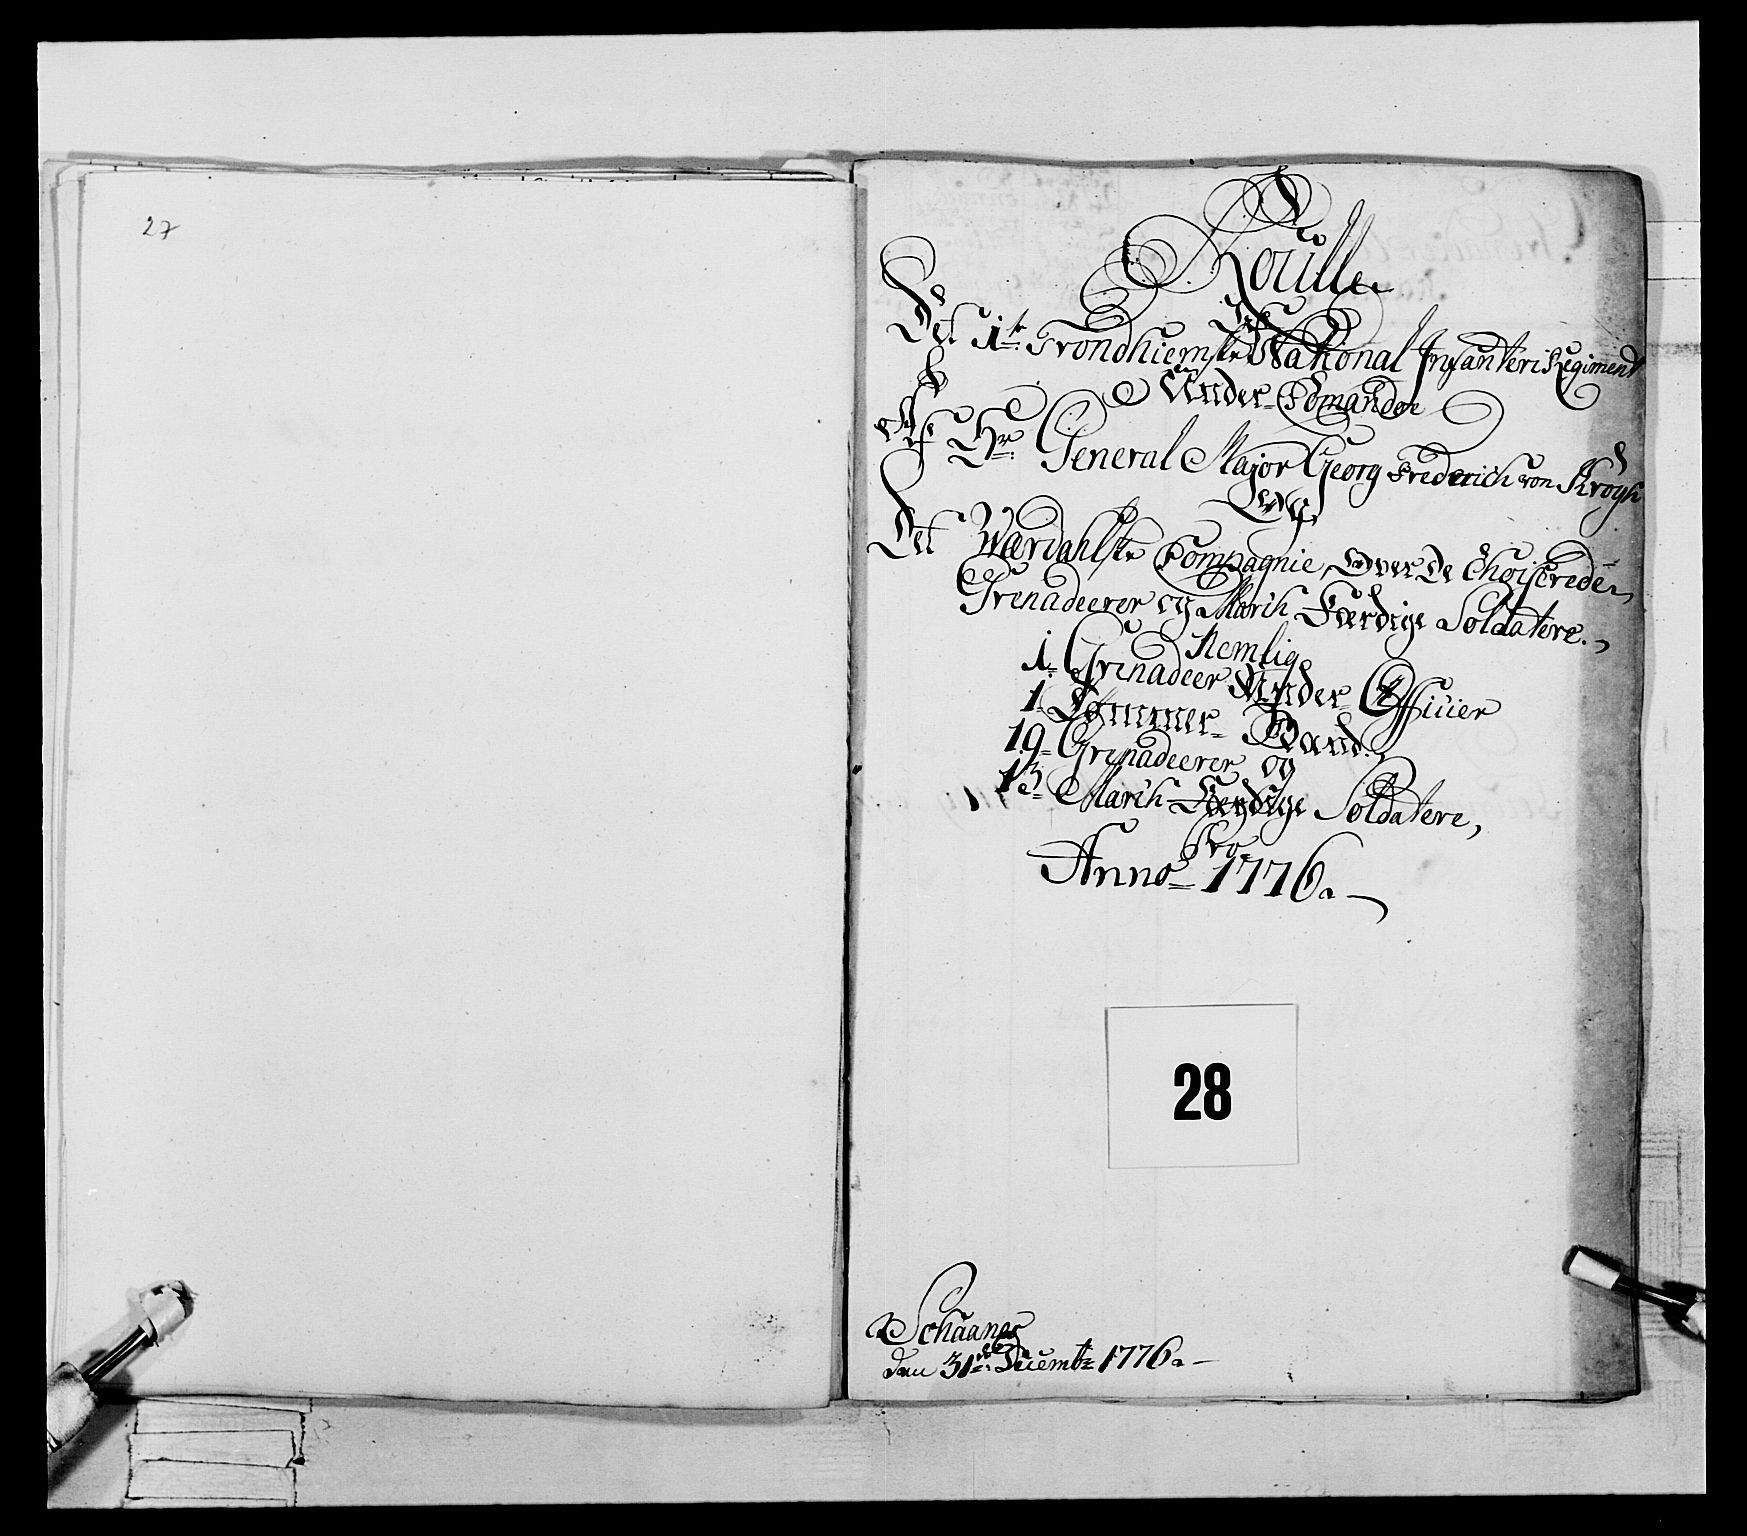 27
Roulle
Ved
Det 1te Trondhiemske National Infanteri Regiment
Under Comando
Af Hr: General Major Georg Frederich von Krogh
Ved
Det Wærdahlske Compagnie, Over De Choiserede
Grenadeerer og March Færdige Soldatere.
Nemlig
1. Grenadeer Under Officier
1. Tømmer Mand.
19 Grenadeerer og
13 March Færdige Soldatere,
Pro
Anno 1776.
28
Schaanes
den 31te Decembr 1776.